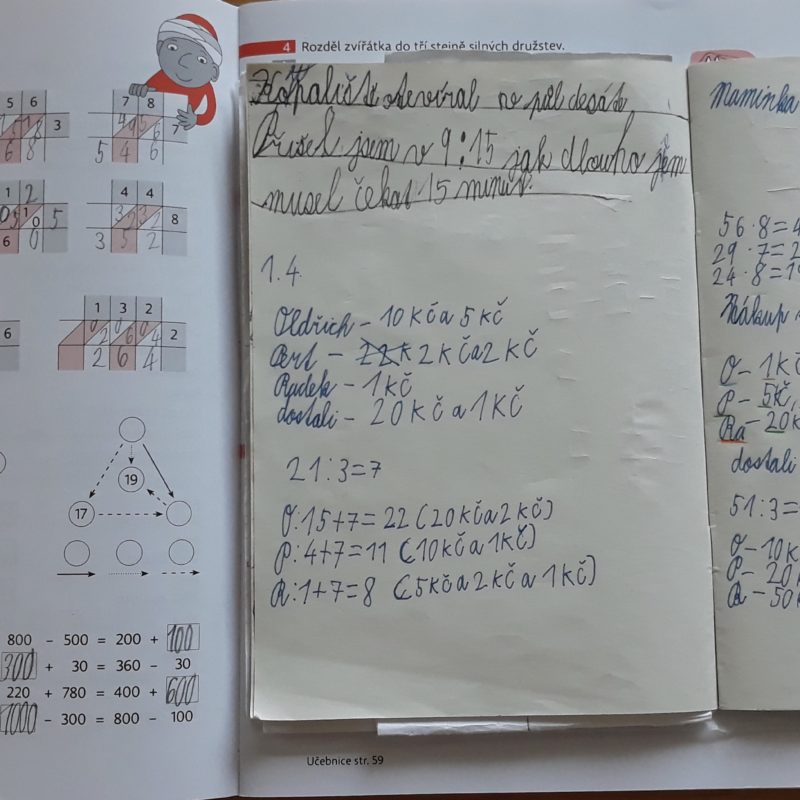 4 Rozděl zvířátka do tří stejně silných družstev.
5 6
3
6 8
7 8
7
5 4 6
1 2
5
6 0
4 4
8
3 5 2
1 3 2
2
2 6 4
6
19
17
800 - 500 = 200 + 100
300 + 30 = 360 - 30
220 + 780 = 400 + 600
1000 - 300 = 800 - 100
otevíral v půl desáté
Přišel jsem v 9:15 jak dlouho jsem
musel čekat 15 minut.
1.4.
Oldřich - 10 kč a 5 kč
- 2 kč a 2 kč
Radek - 1 kč
dostali - 20 kč a 1 kč
21:3=7
O:15+7=22 (20 kč a 2 kč)
P:4+7=11 (10 kč a 1 kč)
R:1+7=8 (5 kč a 2 kč a 1 kč)
Učebnice str. 59
Maminka
56·8=4
29·7=2
24·8=19
Nákup
O- 1 kč
P- 5 kč,
Ra- 20 k
dostali
51:3=
O-10 k
P- 20
R-50 k